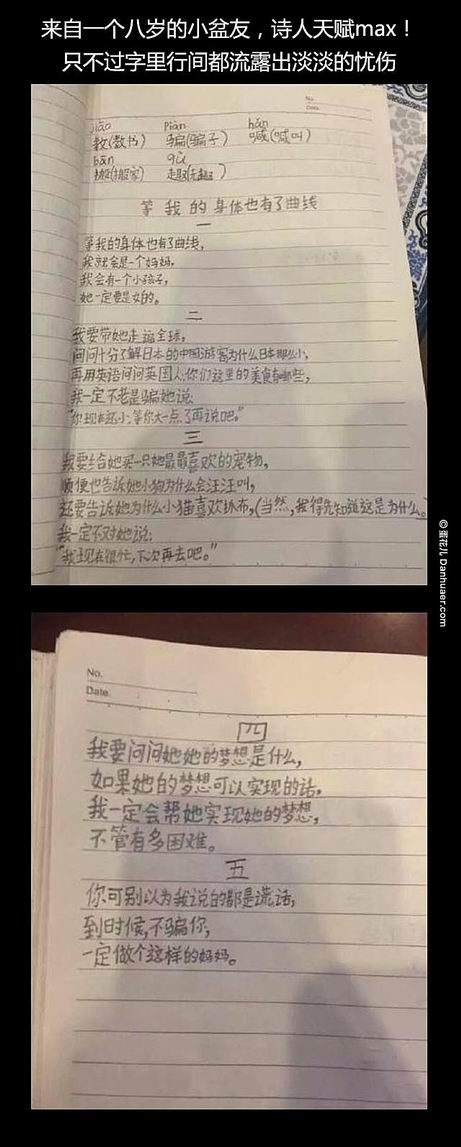 来自一个八岁的小盆友，诗人天赋max！
只不过字里行间都流露出淡淡的忧伤
No.
Date
jiāo piàn hǎn
教(教书) 骗(骗子) 喊(喊叫)
bān qù
搬(搬家) 趣(无趣)
等我的身体也有了曲线
一
等我的身体也有了曲线，
我就会是一个妈妈，
我会有一个小孩子，
她一定要是女的。
二
我要带她走遍全球，
问问十分了解日本的中国游客为什么日本那么小，
再用英语问问英国人：你们这里的美食有哪些，
我一定不老是骗她说：
“你现在还小，等你大一点了再说吧。”
三
我要给她买一只她最最喜欢的宠物，
顺便也告诉她小狗为什么会汪汪叫，
还要告诉她为什么小猫喜欢抓布，(当然，我得先知道这是为什么。
我一定不对她说：
“我现在很忙，下次再去吧。”
©蛋花儿 Danhuaer.com
No.
Date.
四
我要问问她她的梦想是什么，
如果她的梦想可以实现的话，
我一定会帮她实现她的梦想，
不管有多困难。
五
你可别以为我说的都是谎话，
到时候，不骗你，
一定做个这样的妈妈。